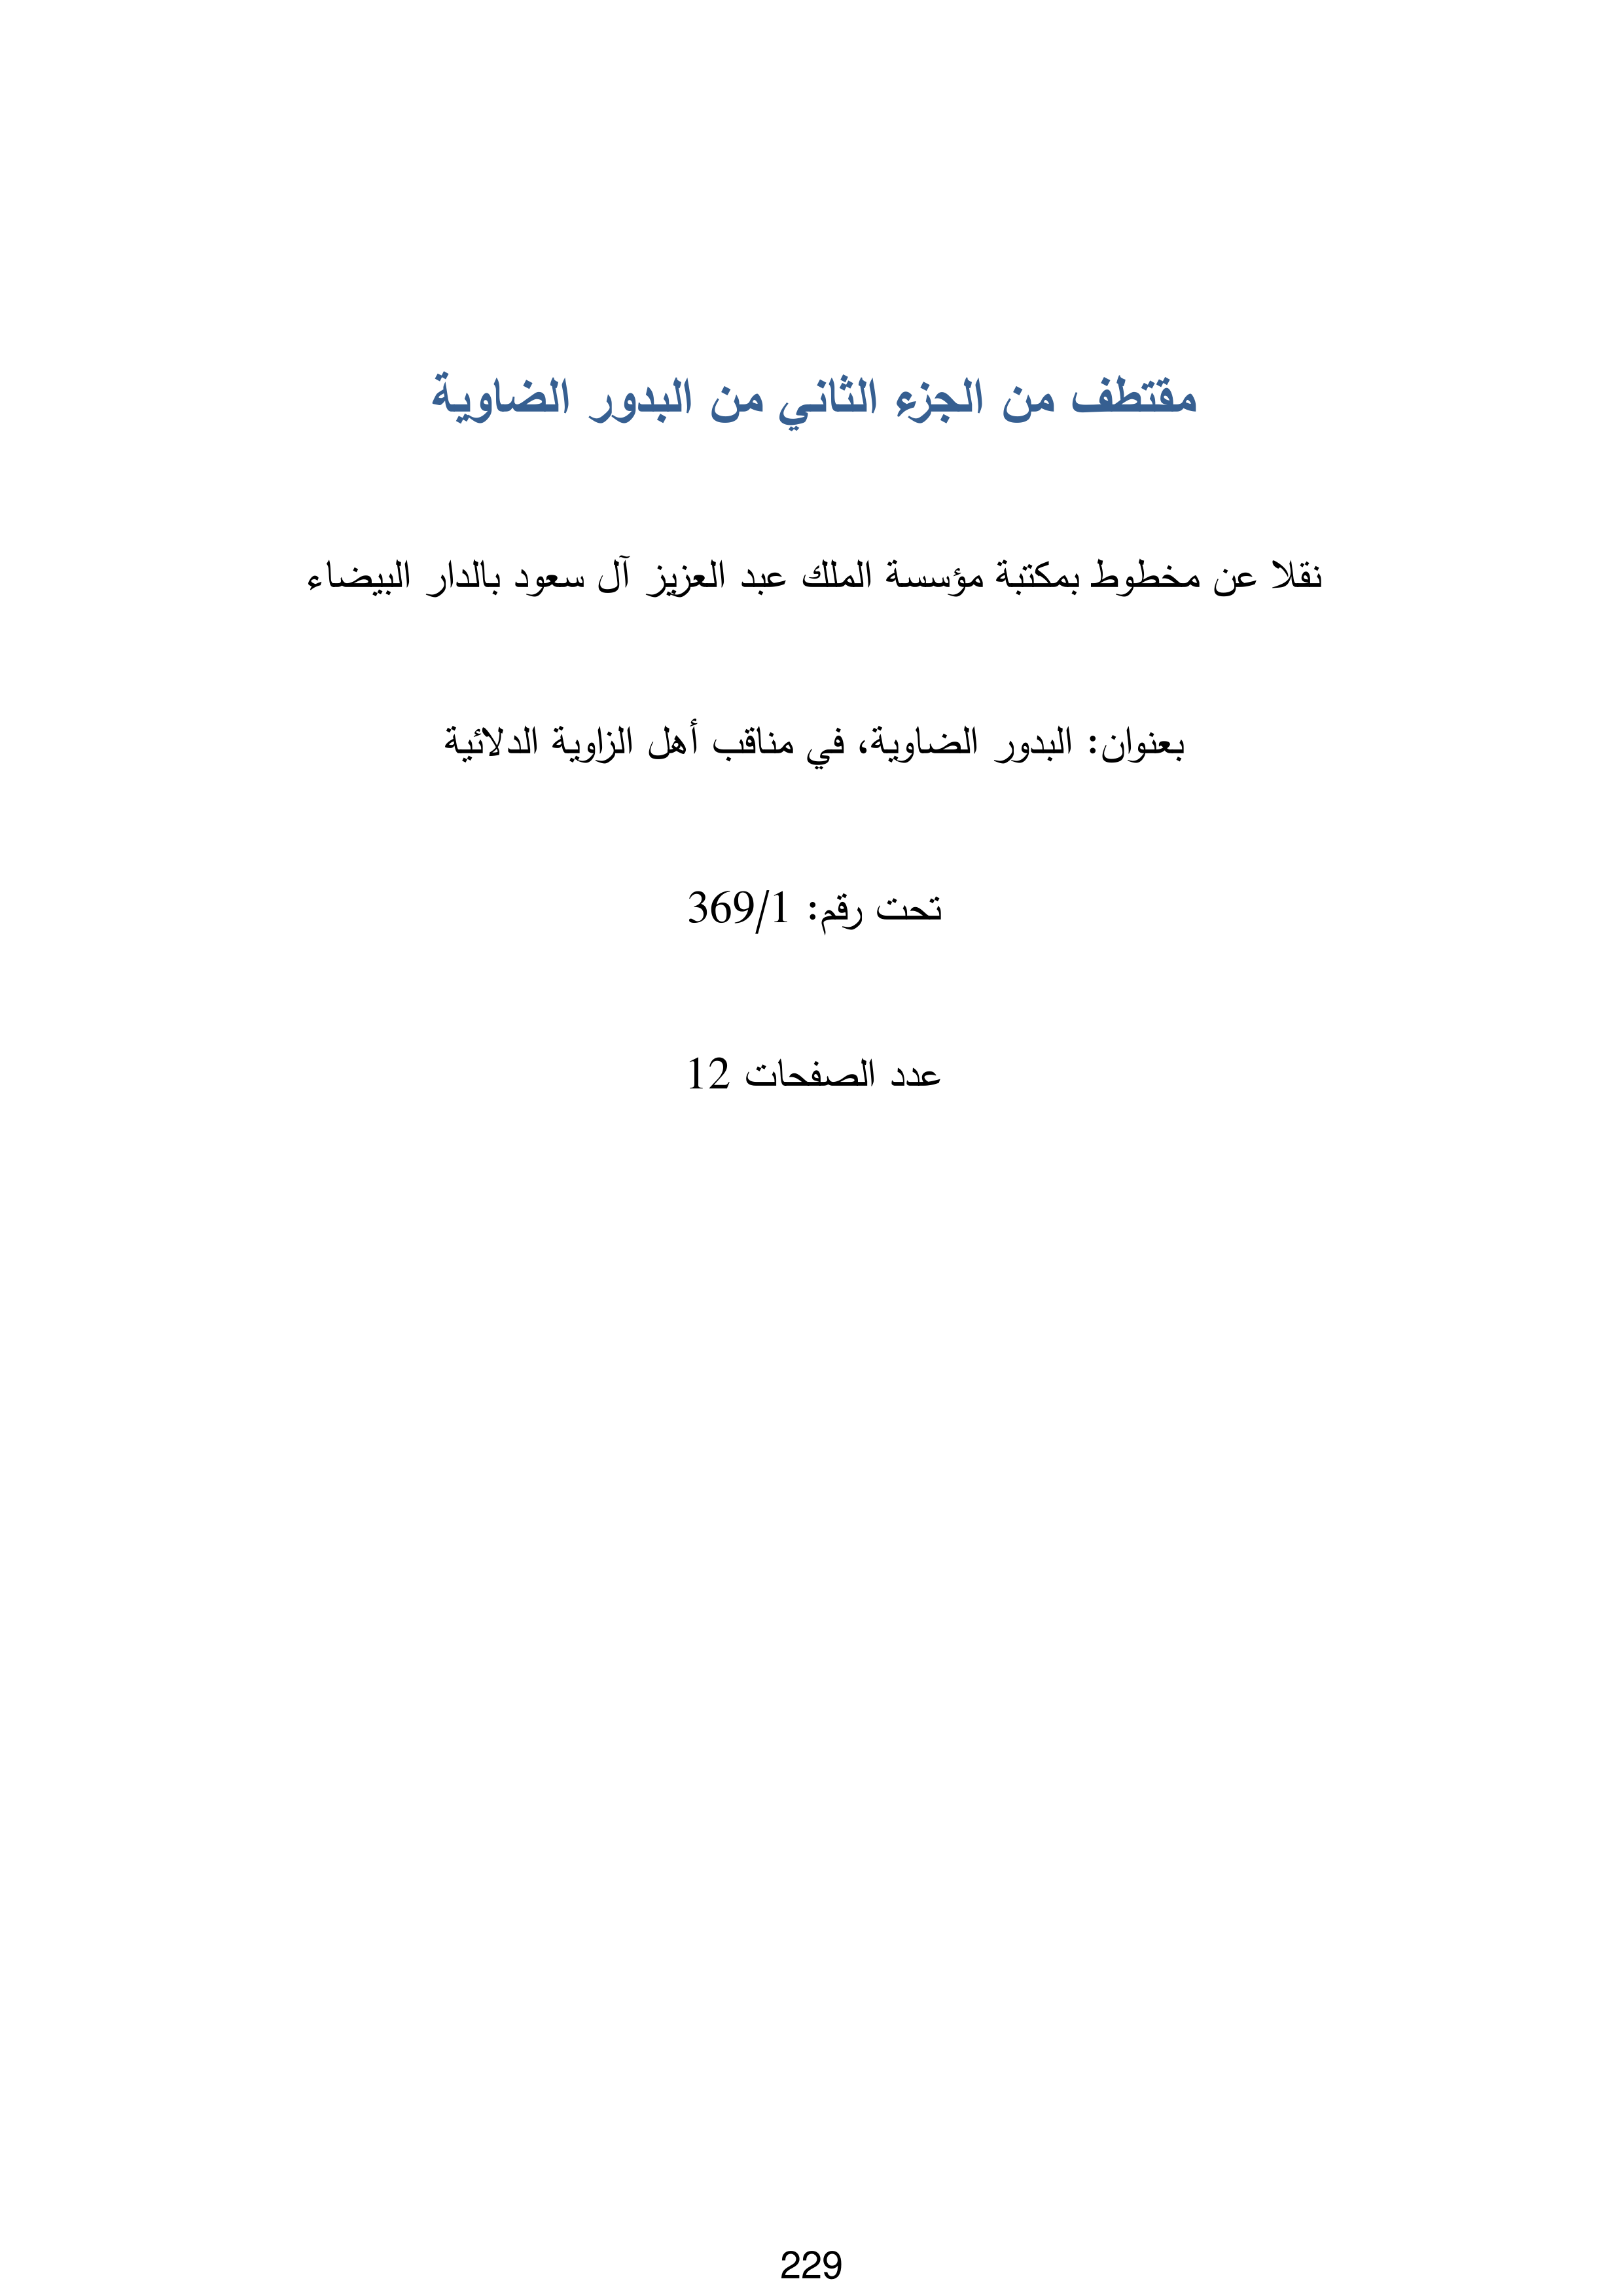 مقتطف من الجزء الثاني من البدور الضاوية
نقلا عن مخطوط بمكتبة مؤسسة الملك عبد العزيز آل سعود بالدار البيضاء
بعنوان: البدور الضاوية، في مناقب أهل الزاوية الدلائية
تحت رقم: 369/1
عدد الصفحات 12
229